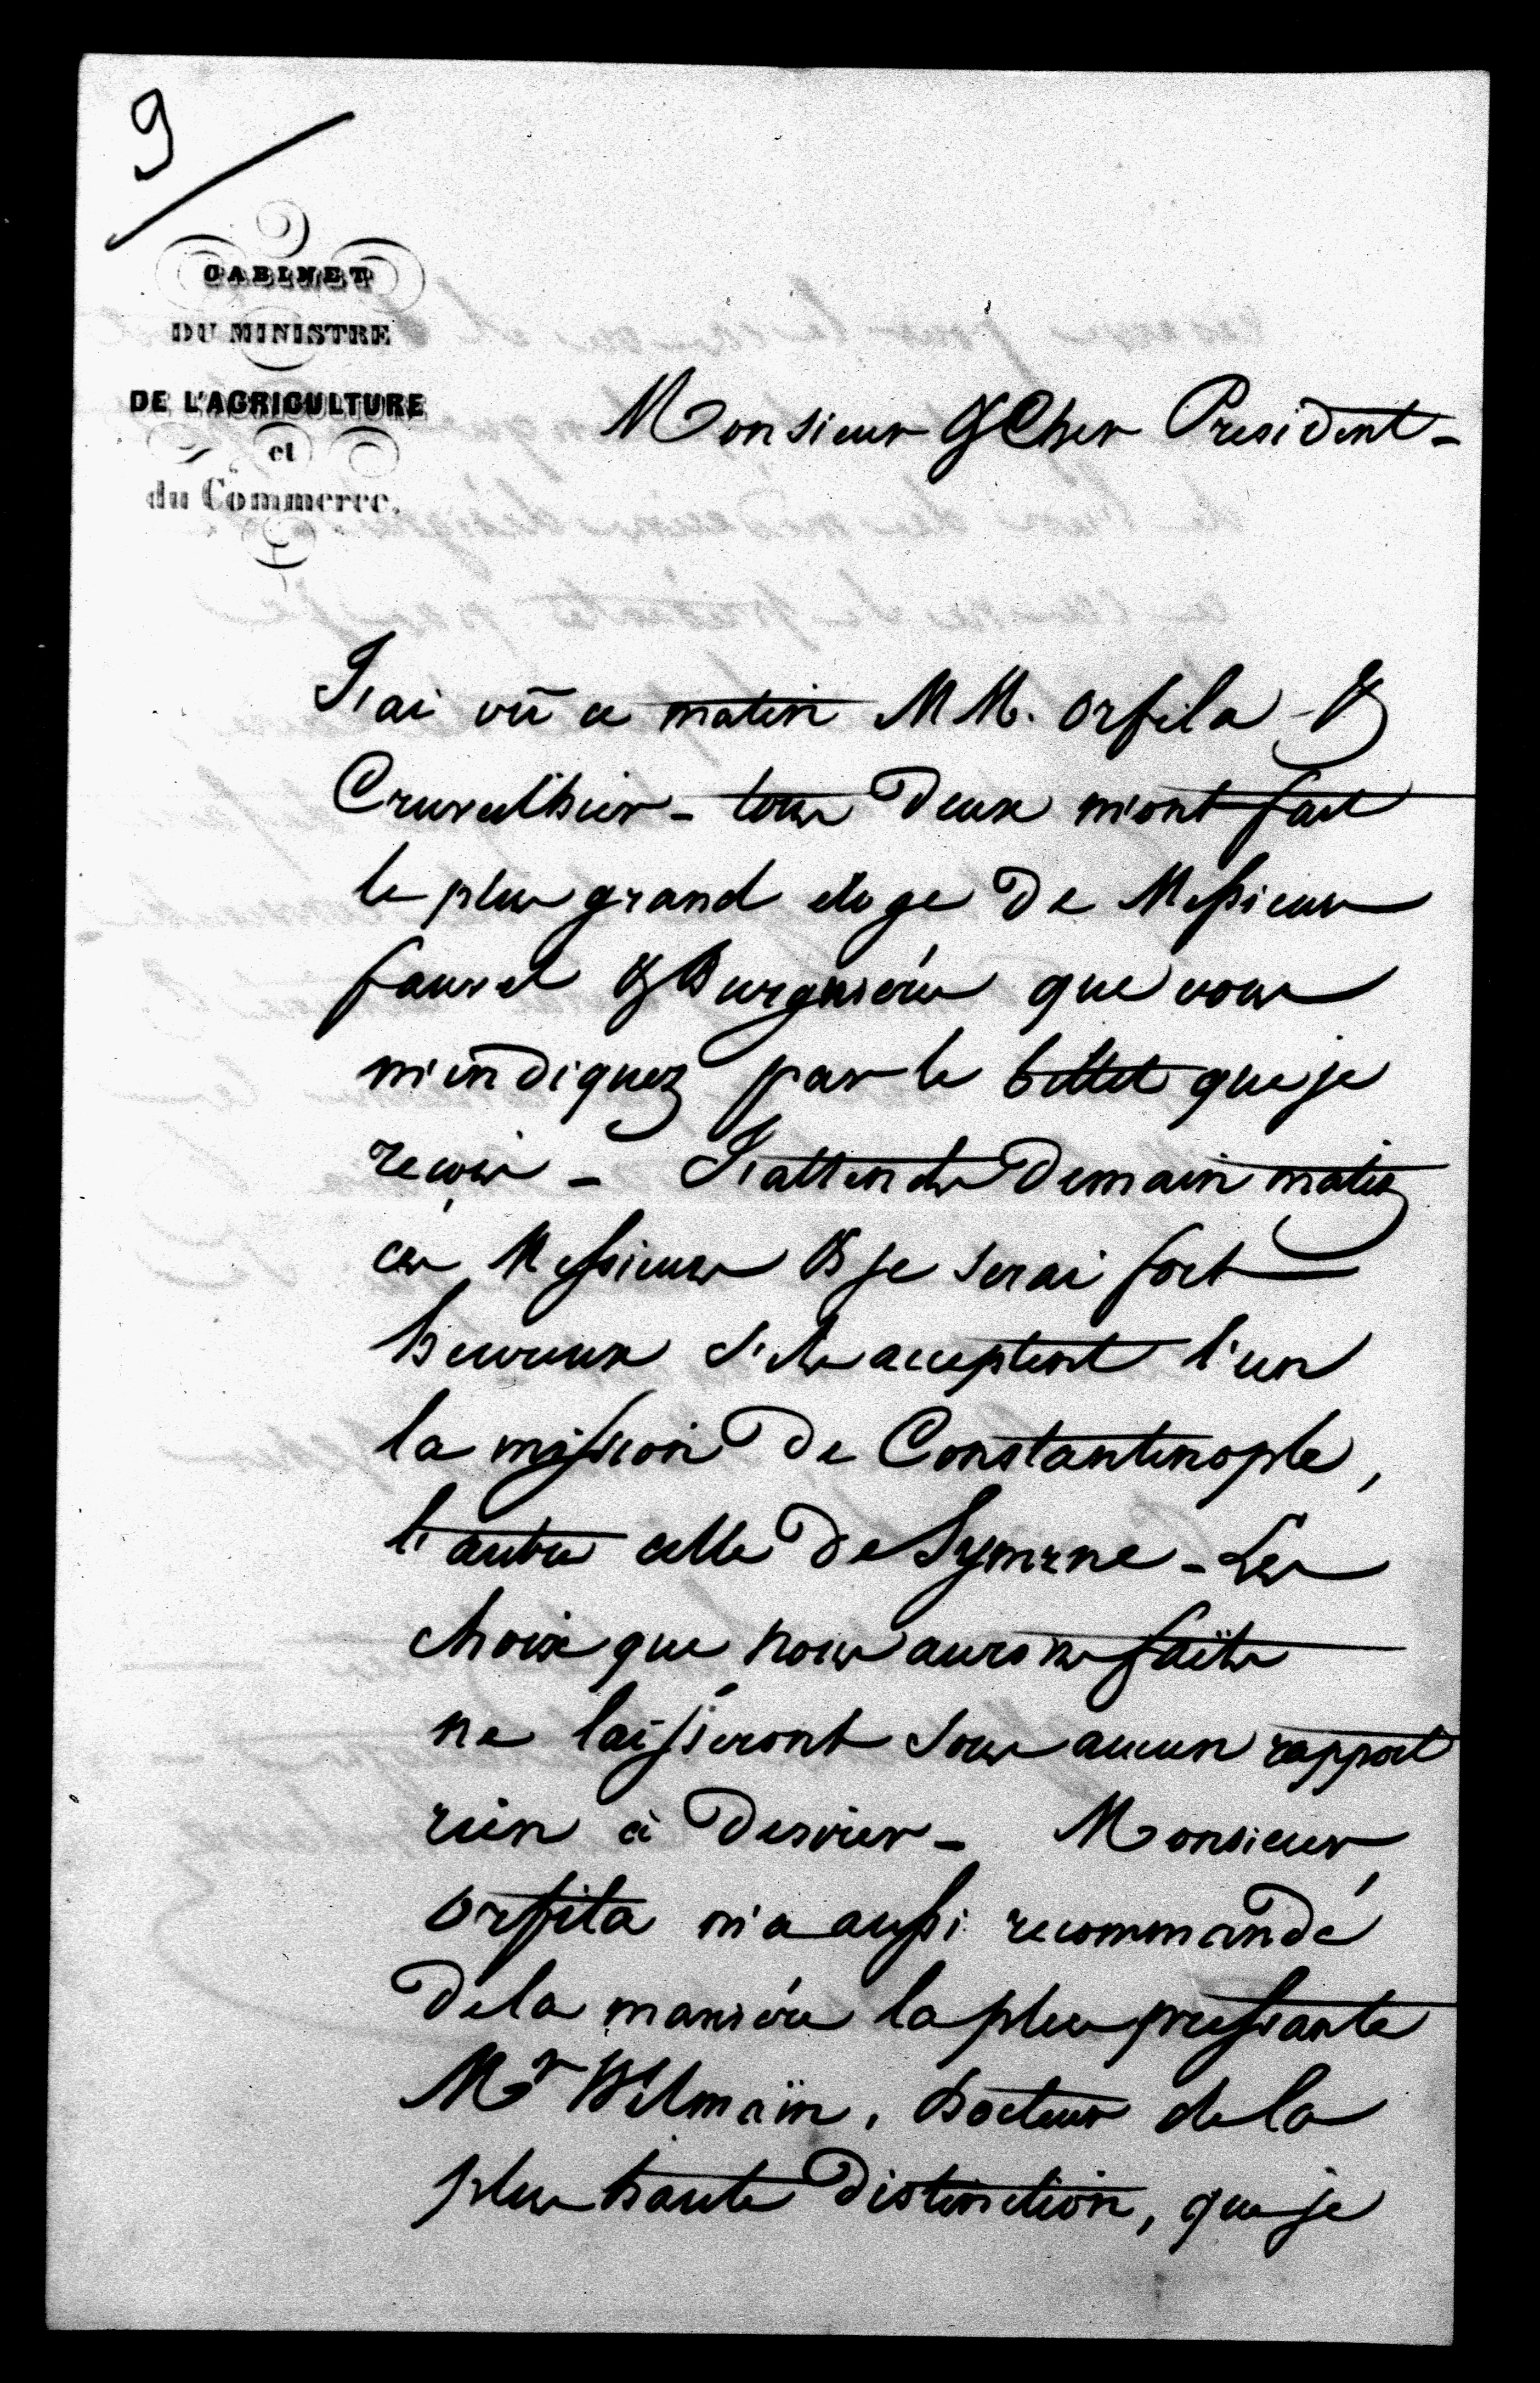 9
CABINET
DU MINISTRE
DE L'AGRICULTURE
et
du Commerce.
Monsieur & Cher President -
J'ai vū ce matin MM. Orfila &
Cruveilhier - tous deux m'ont fait
le plus grand eloge de Messieurs
fauvel & Burguiéres que vous
m'indiquez par le billet que je
reçois - J'attends demain matin
ces Messieurs & je serai fort
heureux s'ils acceptent l'un
la mission de Constantinople,
l'autre celle de Symrne - Les
choix que nous aurons faits
ne laisseront sous aucun rapport
rien à desirer - Monsieur
Orfila m'a aussi recommandé
de la maniére la plus pressante
Mr Wilmain, docteur de la
plus haute distinction, que je